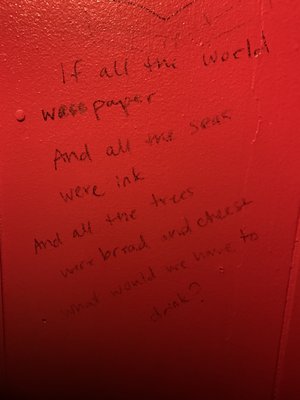 If all the world
were paper
And all the seas
were ink
And all the trees
were bread and cheese
what would we have to
drink?